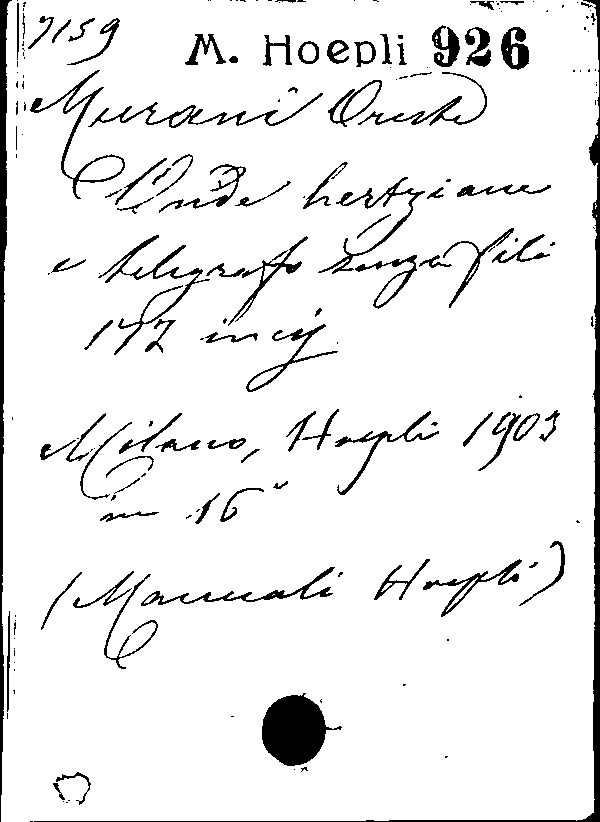 7159
M. Hoepli 926
Murani Oreste
Onde hertziane
e telegrafo senza fili
172 incis
Milano, Hoepli 1903
in 16°
(Manuali Hoepli)